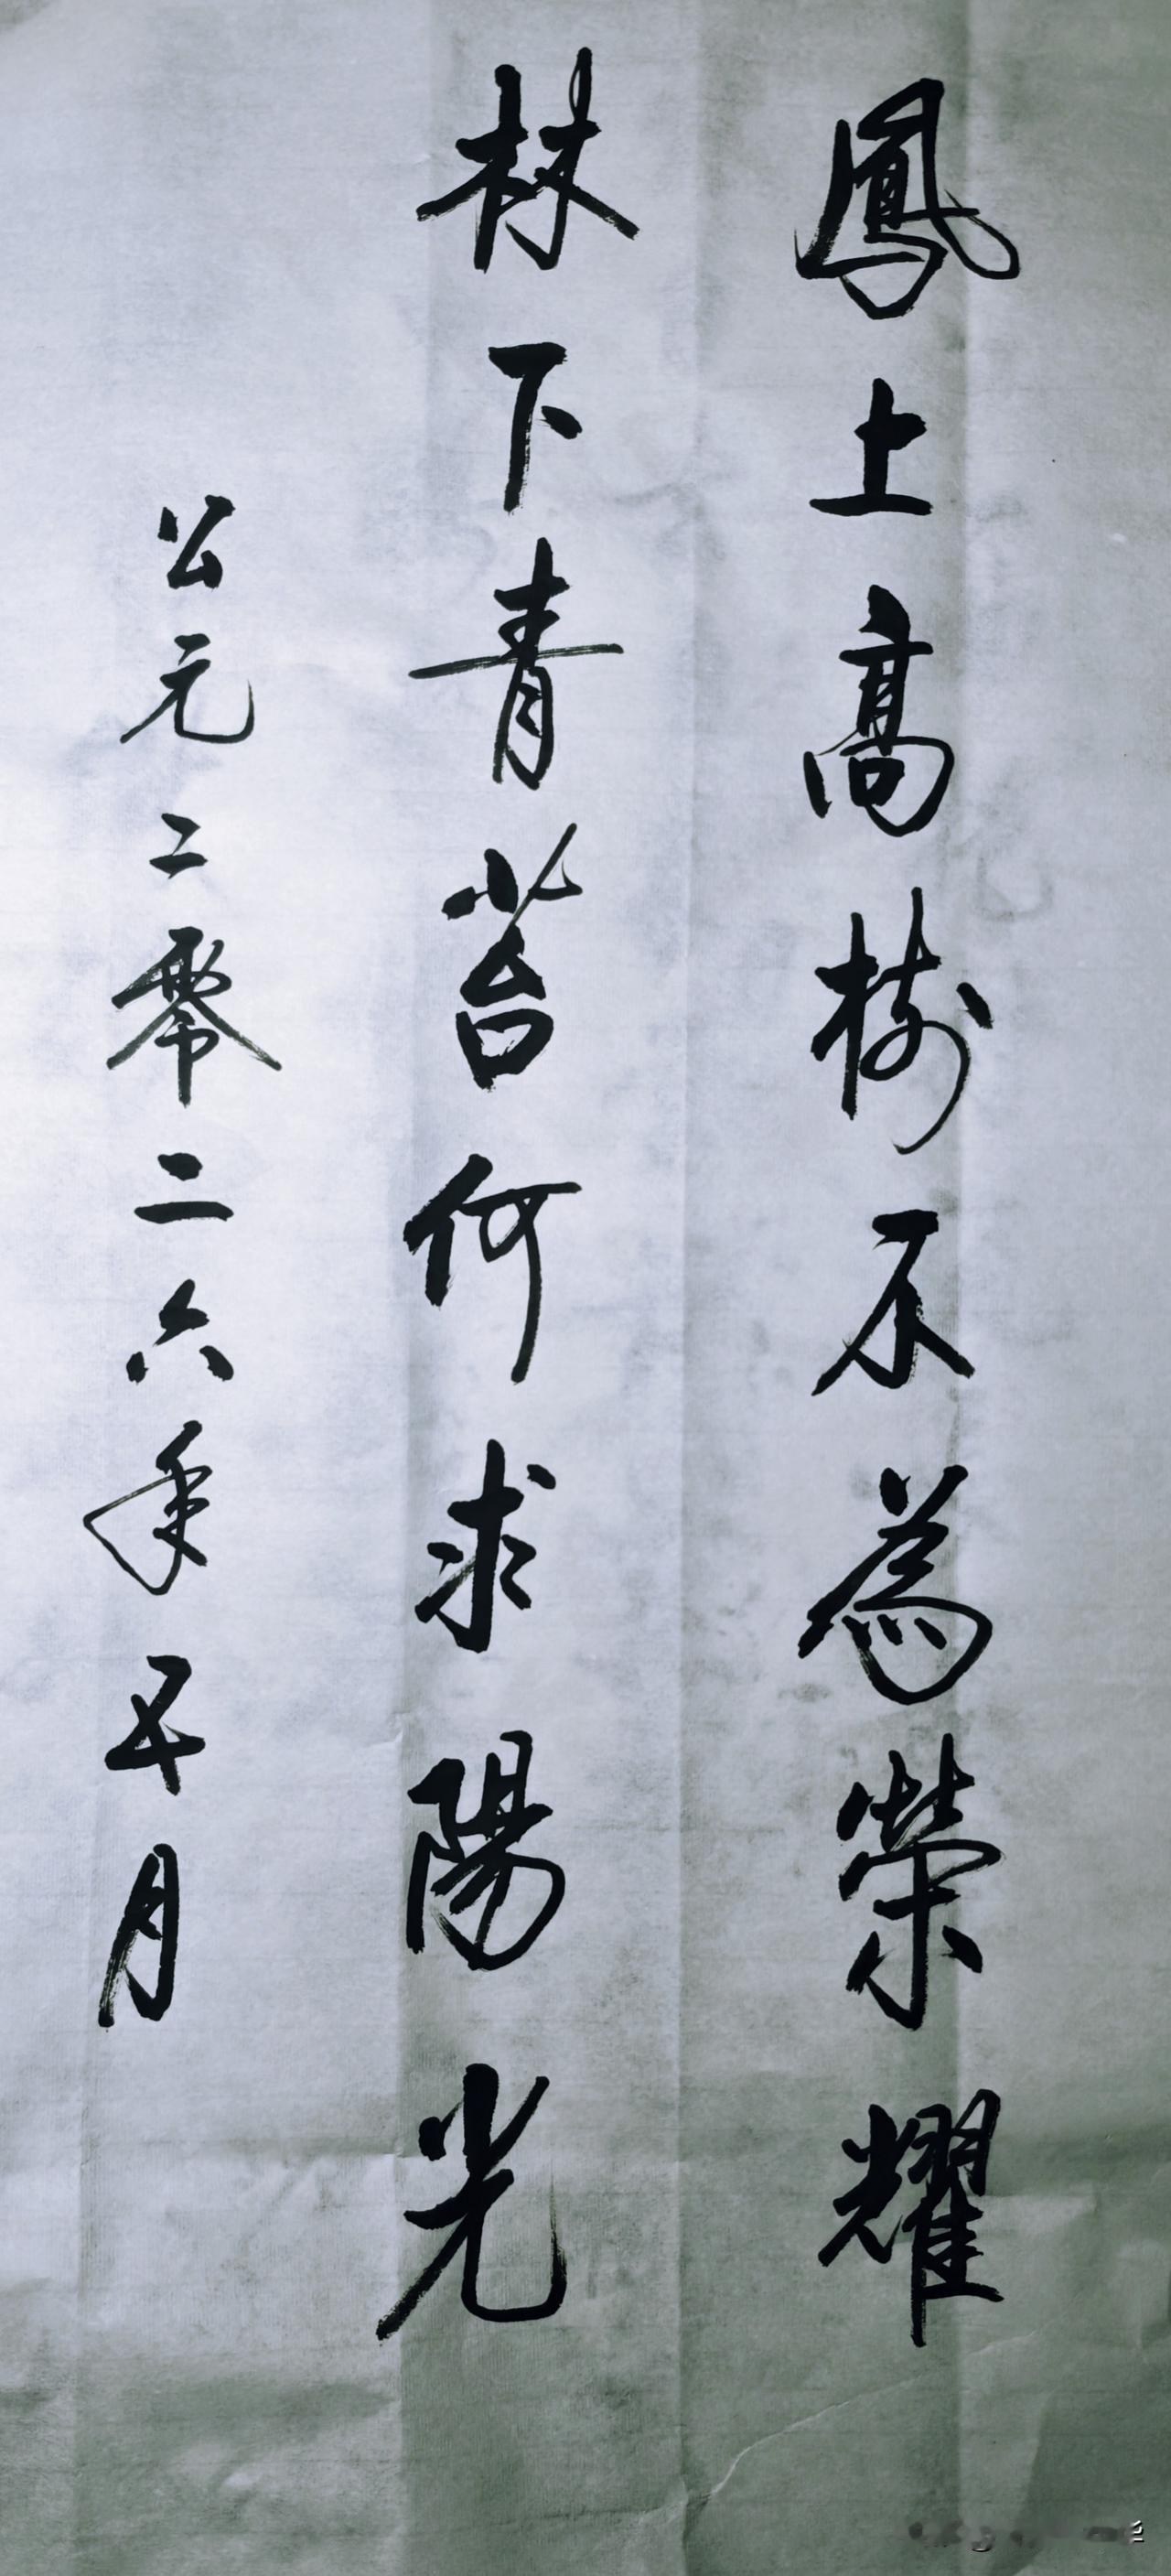 鳳上高樹不為榮耀
林下青苔何求陽光
公元二零二六年五月